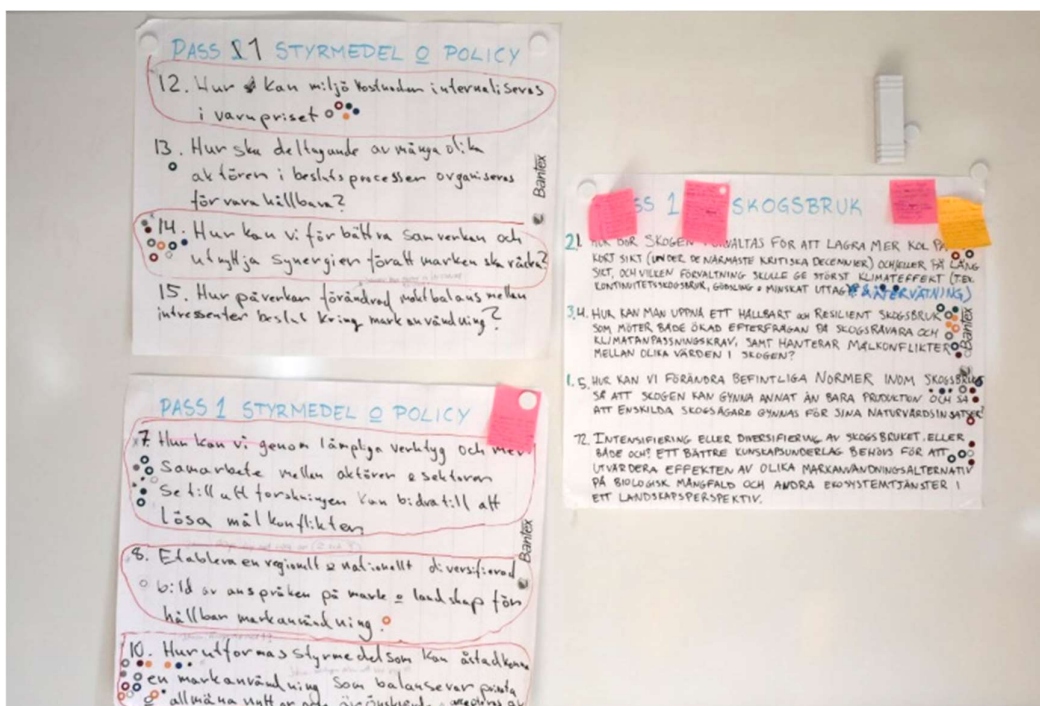 PASS 1 STYRMEDEL O POLICY
12. Hur kan miljökostnaden internaliseras
i varupriset
13. Hur ska deltagande av många olika
aktörer i beslutsprocesser organiseras
för vara hållbara?
14. Hur kan vi förbättra samverkan och
utnyttja synergier föratt marken ska räcka?
15. Hur påverkan förändrad maktbalans mellan
intressenter beslut kring markanvändning?
Bantex
PASS 1 STYRMEDEL O POLICY
7. Hur kan vi genom lämpliga verktyg och mer
Samarbete mellan aktörer o sektorer
Se till att forskningen kan bidra till att
lösa målkonflikter
8. Etablera en regionalt o nationellt diversifierad
bild av anspråken på mark o landskap för
hållbar markanvändning.
10. Hur utformas styrmedel som kan åstadkomma
en markanvändning som balanserar privata
allmäna
Bantex
SS 1 SKOGSBRUK
2. HUR BÖR SKOGEN FÖRVALTAS FÖR ATT LAGRA MER KOL PÅ
KORT SIKT (UNDER DE NÄRMASTE KRITISKA DECENNIER) OCH/ELLER PÅ LÅNG
SIKT, OCH VILKEN FÖRVALTNING SKULLE GE STÖRST KLIMATEFFEKT (T.EX.
KONTINUITETSSKOGSBRUK, GÖDSLING o MINSKAT UTTAG ÅTERVÄTNING)
3,4. HUR KAN MAN UPPNÅ ETT HÅLLBART och RESILIENT SKOGSBRUK
SOM MÖTER BÅDE ÖKAD EFTERFRÅGAN PÅ SKOGSRÅVARA OCH
KLIMATANPASSNINGSKRAV, SAMT HANTERAR MÅLKONFLIKTER
MELLAN OLIKA VÄRDEN I SKOGEN?
1. 5. HUR KAN VI FÖRÄNDRA BEFINTLIGA NORMER INOM SKOGSBRUK
SÅ ATT SKOGEN KAN GYNNA ANNAT ÄN BARA PRODUKTION OCH SÅ
ATT ENSKILDA SKOGSÄGARE GYNNAS FÖR SINA NATURVÅRDSINSATSER?
72. INTENSIFIERING ELLER DIVERSIFIERING AV SKOGSBRUKET, ELLER
BÅDE OCH? ETT BÄTTRE KUNSKAPSUNDERLAG BEHÖVS FÖR ATT
UTVÄRDERA EFFEKTEN AV OLIKA MARKANVÄNDNINGSALTERNATIV
PÅ BIOLOGISK MÅNGFALD OCH ANDRA EKOSYSTEMTJÄNSTER I
ETT LANDSKAPSPERSPEKTIV.
Bantex